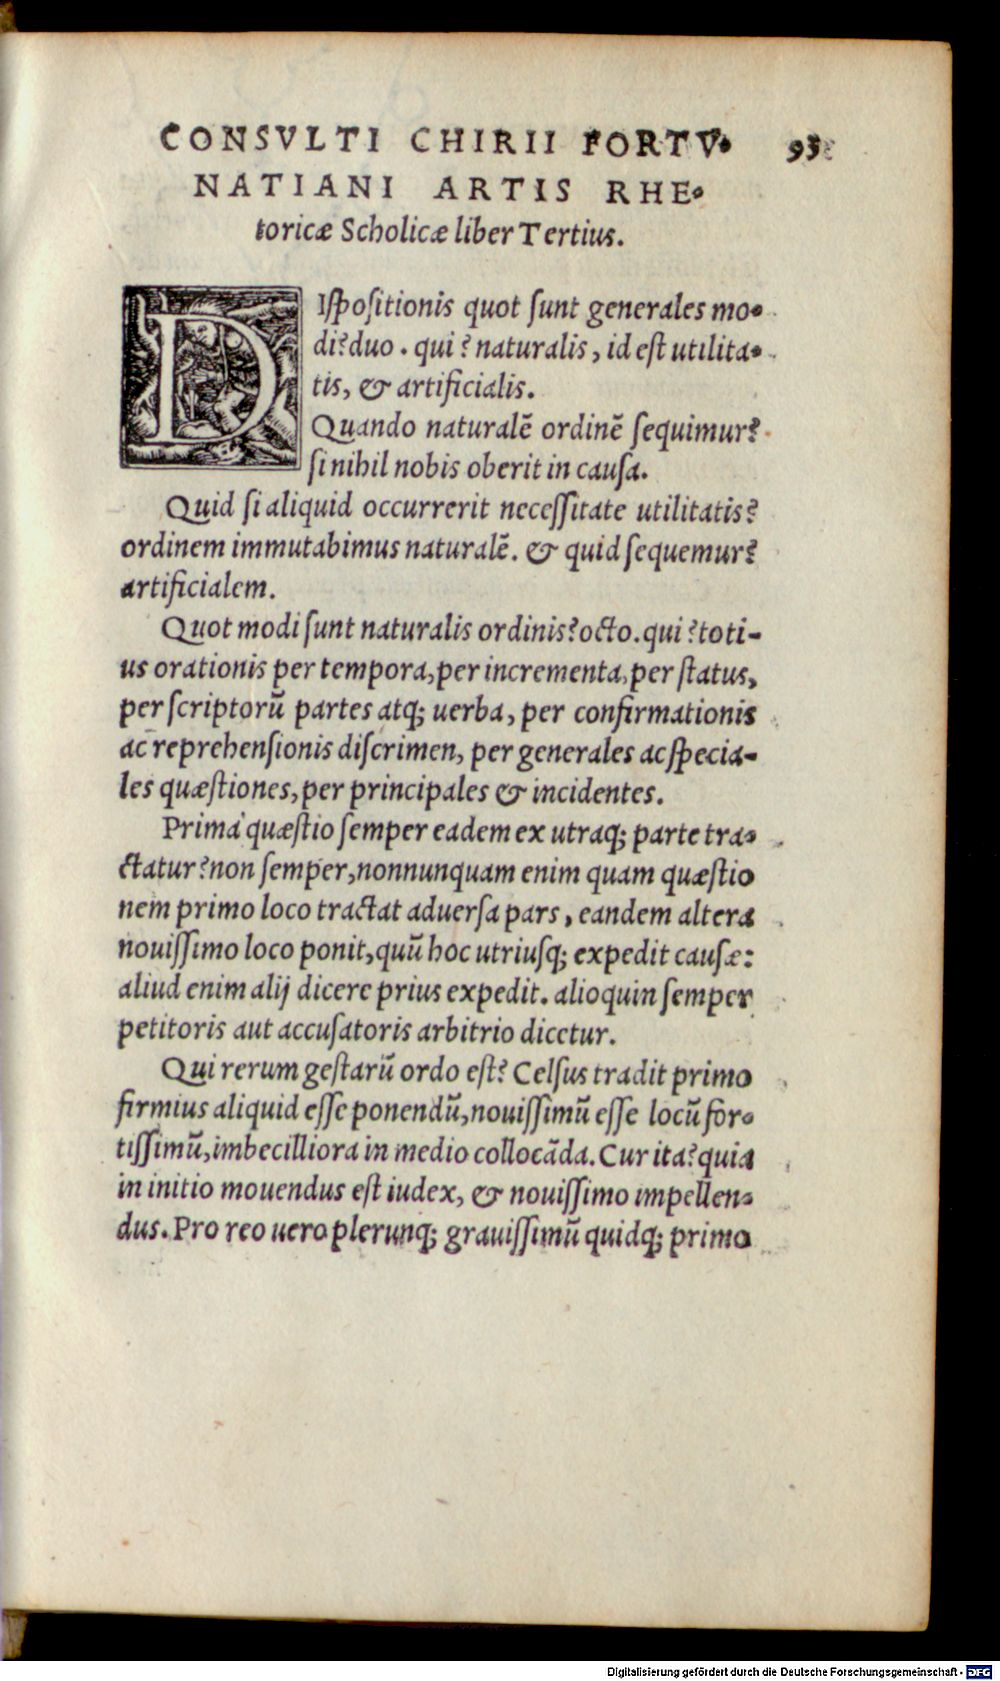 CONSVLTI CHIRII FORTV- 93
NATIANI ARTIS RHE-
toricæ Scholicæ liber Tertius.
DIſpoſitionis quot ſunt generales mo-
di? duo. qui? naturalis, id eſt utilita-
tis, & artificialis.
Quando naturalẽ ordinẽ ſequimur?
ſi nihil nobis oberit in cauſa.
Quid ſi aliquid occurrerit neceſſitate utilitatis?
ordinem immutabimus naturalẽ. & quid ſequemur?
artificialem.
Quot modi ſunt naturalis ordinis? octo. qui? toti-
us orationis per tempora, per incrementa, per ſtatus,
per ſcriptorũ partes atq; uerba, per confirmationis
ac reprehenſionis diſcrimen, per generales ac ſpecia-
les quæſtiones, per principales & incidentes.
Prima quæſtio ſemper eadem ex utraq; parte tra-
ctatur? non ſemper, nonnunquam enim quam quæſtio
nem primo loco tractat aduerſa pars, eandem altera
nouiſſimo loco ponit, quũ hoc utriuſq; expedit cauſæ:
aliud enim alij dicere prius expedit. alioquin ſemper
petitoris aut accuſatoris arbitrio dicetur.
Qui rerum geſtarũ ordo eſt? Celſus tradit primo
firmius aliquid eſſe ponendũ, nouiſſimũ eſſe locũ for-
tiſſimũ, imbecilliora in medio collocãda. Cur ita? quia
in initio mouendus eſt iudex, & nouiſſimo impellen-
dus. Pro reo uero plerunq; grauiſſimũ quidq; primo
Digitalisierung gefördert durch die Deutsche Forschungsgemeinschaft - DFG